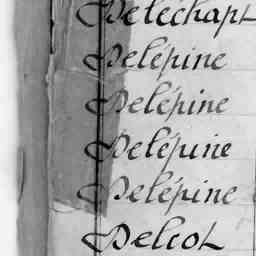 Deléchapt
Delépine
Delépine
Delépine
Delépine
Delcot